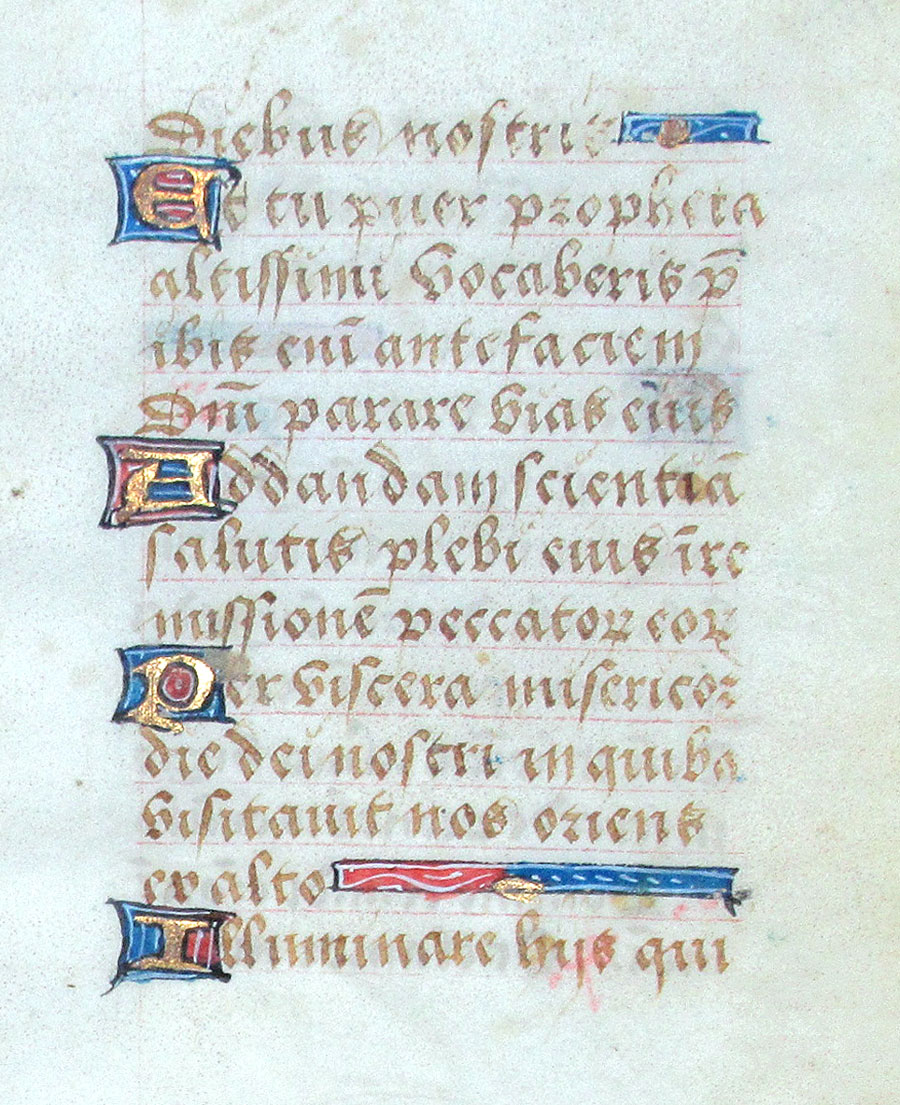 diebus nostris
Et tu puer propheta
altissimi vocaberis p̄
ibis enī ante faciem
dn̄i parare vias eius
Ad dandam scientiā
salutis plebi eius ī re
missionē peccatoꝝ eoꝝ
Per viscera misericor
die dei nostri in quibꝰ
visitauit nos oriens
ex alto
Illuminare hijs qui